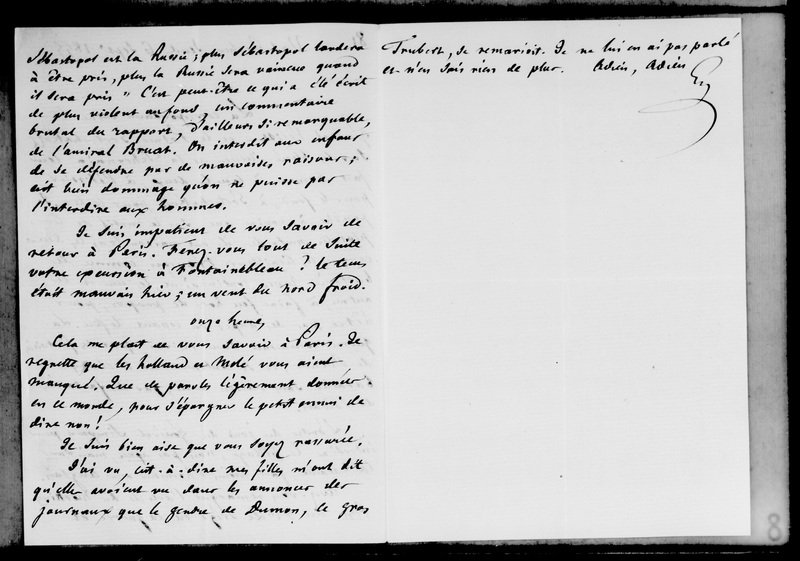 Sébastopol est la Russie ; plus Sébastopol tardera
à être pris, plus la Russie sera vaincue quand
il sera pris " C'est peut-être ce qui a été écrit
de plus violent au fond, un commentaire
brutal du rapport, d'ailleurs si remarquable,
de l'amiral Bruat. On interdit aux enfans
de se défendre par de mauvaises raisons ;
c'est bien dommage qu'on ne puisse pas
l'interdire aux hommes.
Je suis impatient de vous savoir de
retour à Paris. Ferez-vous tout de suite
votre excursion à Fontainebleau ? Le tems
était mauvais hier ; un vent du nord froid.
onze heures,
Cela me plaît de vous savoir à Paris. Je
regrette que les Holland et Molé vous aient
manqué. Que de paroles légèrement données
en ce monde, pour s'épargner le petit ennui de
dire non !
Je suis bien aise que vous soyez rassurée.
J'ai vu, c'est-à-dire mes filles m'ont dit
qu'elles avoient vu dans les annonces des
journaux que le gendre de Dumon, le gros
Trubert, se remarioit. Je ne lui en ai pas parlé
et n'en sais rien de plus. Adieu, Adieu
8